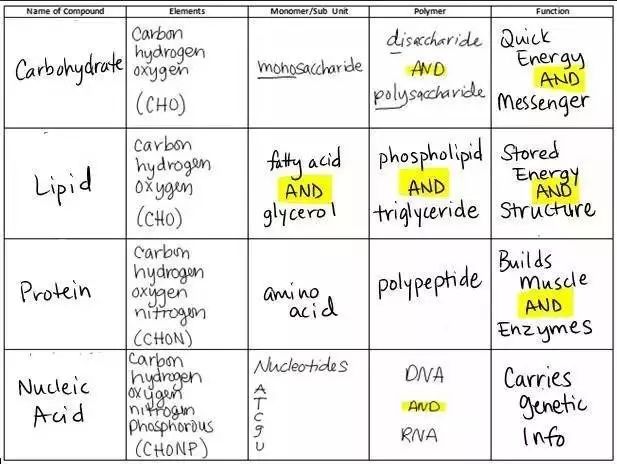 Name of Compound Elements Monomer/Sub Unit Polymer Function
Carbohydrate
Carbon
hydrogen
oxygen
(CHO)
monosaccharide
disaccharide
AND
polysaccharide
Quick
Energy
AND
Messenger
Lipid
Carbon
hydrogen
oxygen
(CHO)
fatty acid
AND
glycerol
phospholipid
AND
triglyceride
Stored
Energy
AND
Structure
Protein
Carbon
hydrogen
oxygen
nitrogen
(CHON)
amino
acid
polypeptide
Builds
muscle
AND
Enzymes
Nucleic
Acid
Carbon
hydrogen
oxygen
nitrogen
phosphorous
(CHONP)
Nucleotides
A
T
C
g
U
DNA
AND
RNA
Carries
genetic
Info